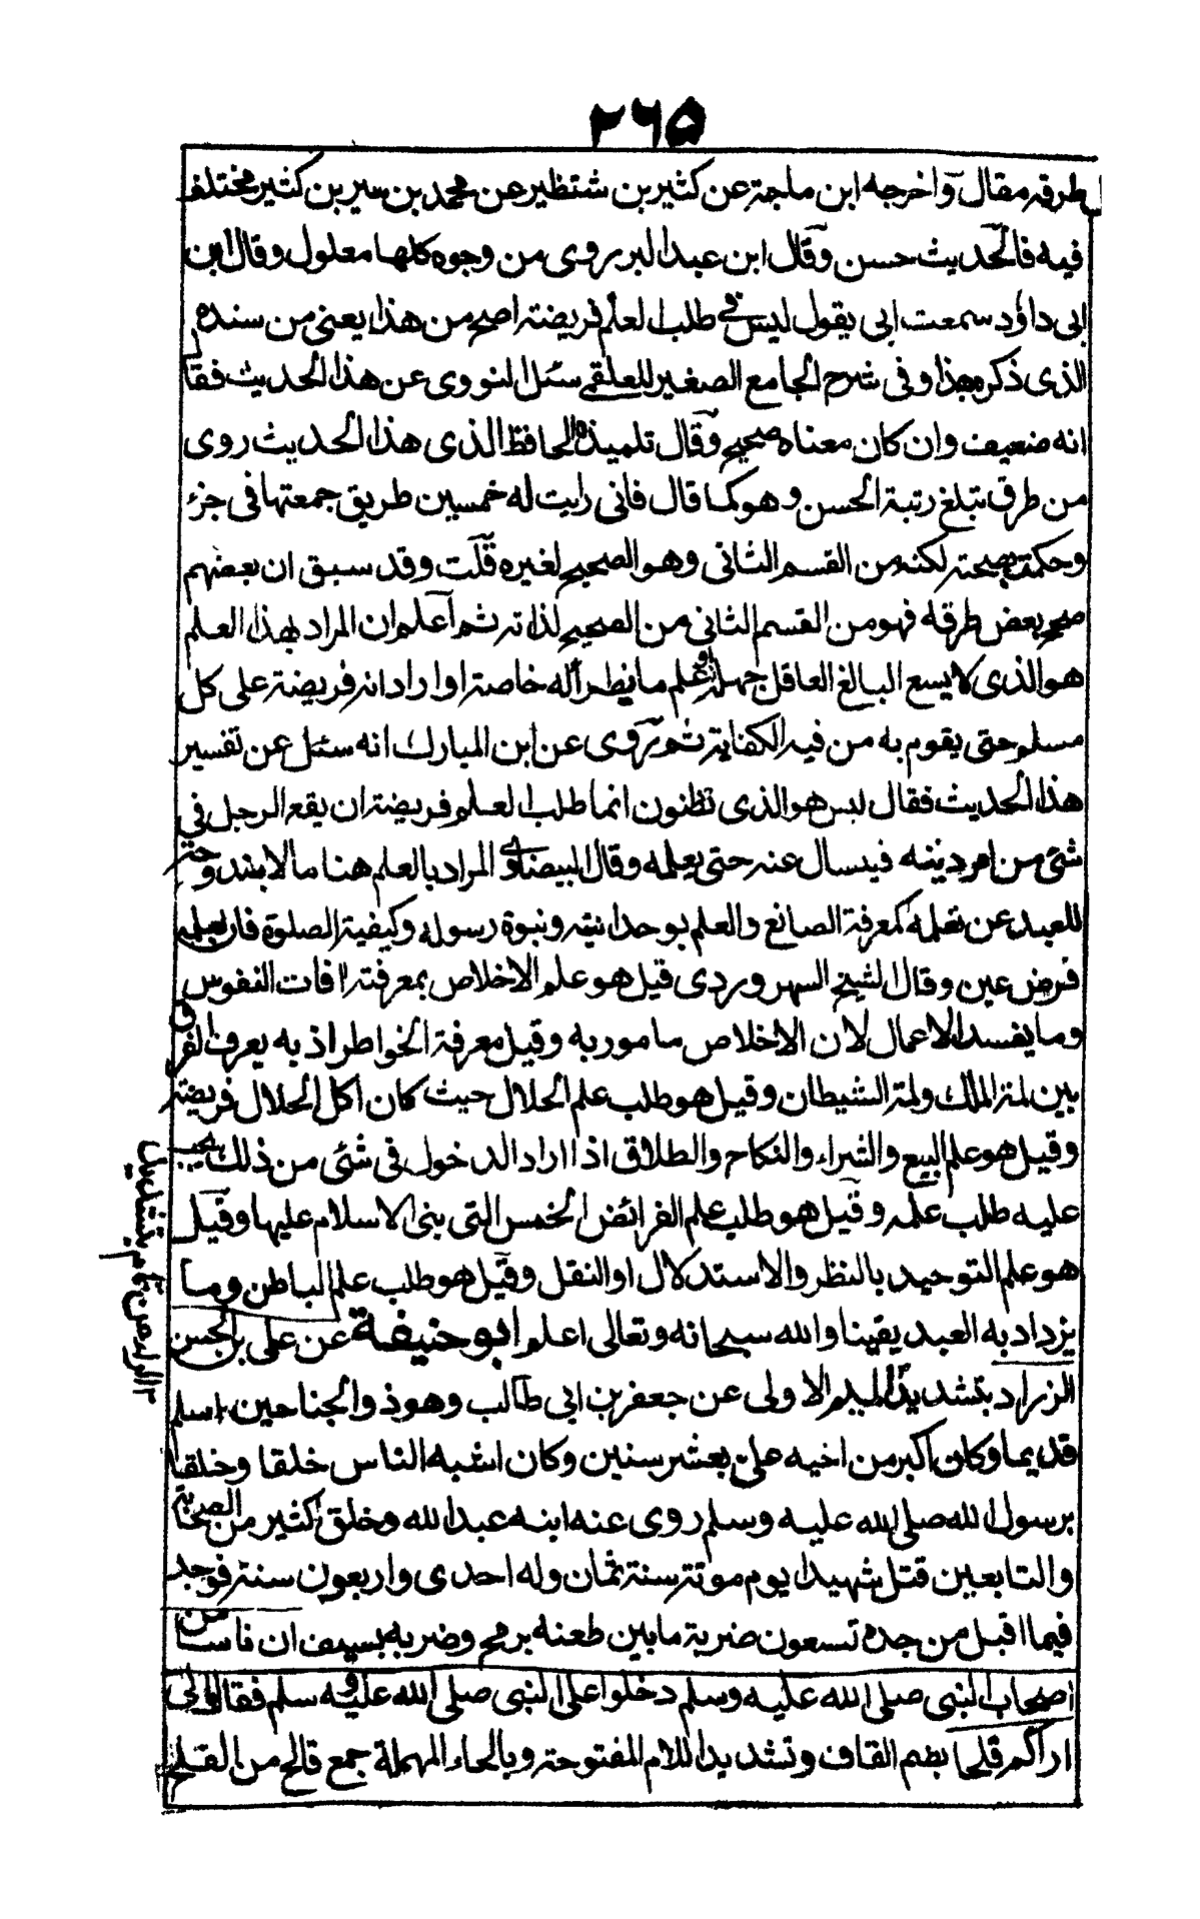 ٢٦٥
طرقه مقال واخرجه ابن ماجة عن كثير بن شنظير عن محمد بن سيرين كثير مختلف
فيه فالحديث حسن وقال ابن عبد البر يروى من وجوه كلها معلول وقال ابن
ابى داؤد سمعت ابى يقول ليس فى طلب العلم فريضة اصح من هذا يعنى من سنده
الذى ذكره هذا وفى شرح الجامع الصغير للعلقمى سئل النووى عن هذا الحديث فقال
انه ضعيف وان كان معناه صحيح وقال تلميذه الحافظ الذى هذا الحديث روى
من طرق تبلغ رتبة الحسن وهو كما قال فانى رايت له خمسين طريق جمعتها فى جزء
وحكمت بصحته لكنه من القسم الثانى وهو الصحيح لغيره قلت وقد سبق ان بعضهم
صحح بعض طرقه فهو من القسم الثانى من الصحيح لذاته ثم اعلم ان المراد بهذا العلم
هو الذى لا يسع البالغ العاقل جهله او علم ما يطرأ له خاصة او اراد انه فريضة على كل
مسلم حتى يقوم به من فيه الكفاية ثم روى عن ابن المبارك انه سئل عن تفسير
هذا الحديث فقال ليس هو الذى تظنون انما طلب العلم فريضة ان يقع الرجل فى
شئ من امر دينه فيسال عنه حتى يعلمه وقال البيضاوى المراد بالعلم هنا ما لا مندوحة
للعبد عن تعلمه كمعرفة الصانع والعلم بوحدانيته ونبوة رسوله وكيفية الصلوة فان تعلمه
فرض عين وقال الشيخ السهروردى قيل هو علم الاخلاص بمعرفته افات النفوس
وما يفسد الاعمال لان الاخلاص مامور به وقيل معرفة الخواطر اذ به يعرف الفرق
بين لمة الملك ولمة الشيطان وقيل هو طلب علم الحلال حيث كان اكل الحلال فريضة
وقيل هو علم البيع والشراء والنكاح والطلاق اذا اراد الدخول فى شئ من ذلك يجب
عليه طلب علمه وقيل هو طلب علم الفرائض الخمس التى بنى الاسلام عليها وقيل
هو علم التوحيد بالنظر والاستدلال او النقل وقيل هو طلب علم الباطن وما
يزداد به العبد يقينا والله سبحانه وتعالى اعلم ابو حنيفة عن على بن الحسن
الزراد بتشديد الميم الاولى عن جعفر بن ابى طالب وهو ذو الجناحين اسلم
قديما وكان اكبر من اخيه على بعشر سنين وكان اشبه الناس خلقا وخلقا
برسول الله صلى الله عليه وسلم روى عنه ابنه عبد الله وخلق كثير من الصحابة
والتابعين قتل شهيدا يوم موتة سنة ثمان وله احدى واربعون سنة فوجد
فيما اقبل من جده تسعون ضربة ما بين طعنه برمح وضربه بسيف ان ناسا من
اصحاب النبى صلى الله عليه وسلم دخلوا على النبى صلى الله عليه وسلم فقال مالى
اراكم قلحا بضم القاف وتشديد اللام المفتوحة وبالحاء المهملة جمع قالح من القلح